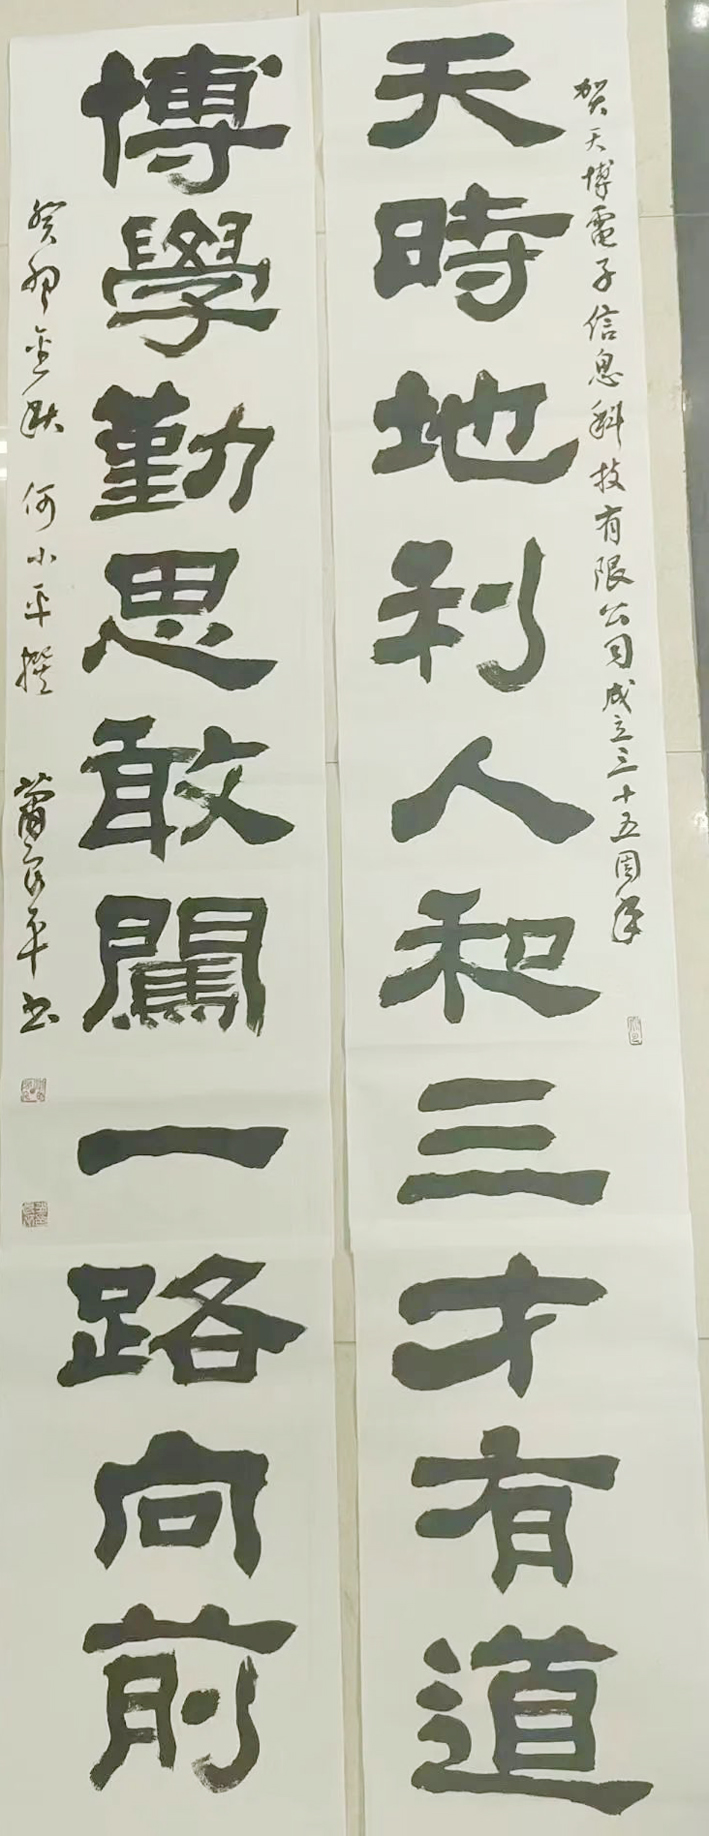 賀天博電子信息科技有限公司成立三十五周年
天時地利人和三才有道
博學勤思敢闖一路向前
癸卯金秋 何小平撰
蕭 平书